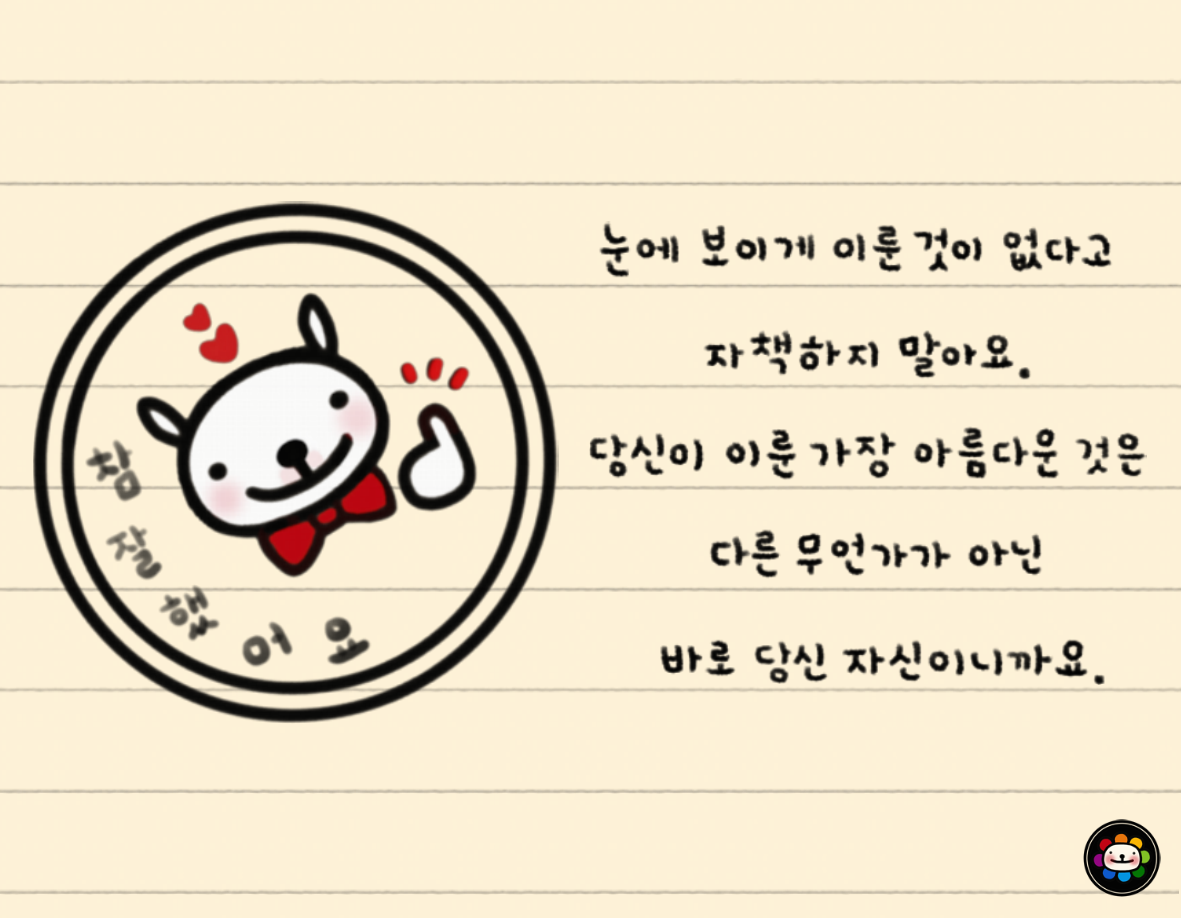 참 잘 했 어 요
눈에 보이게 이룬 것이 없다고
자책하지 말아요.
당신이 이룬 가장 아름다운 것은
다른 무언가가 아닌
바로 당신 자신이니까요.